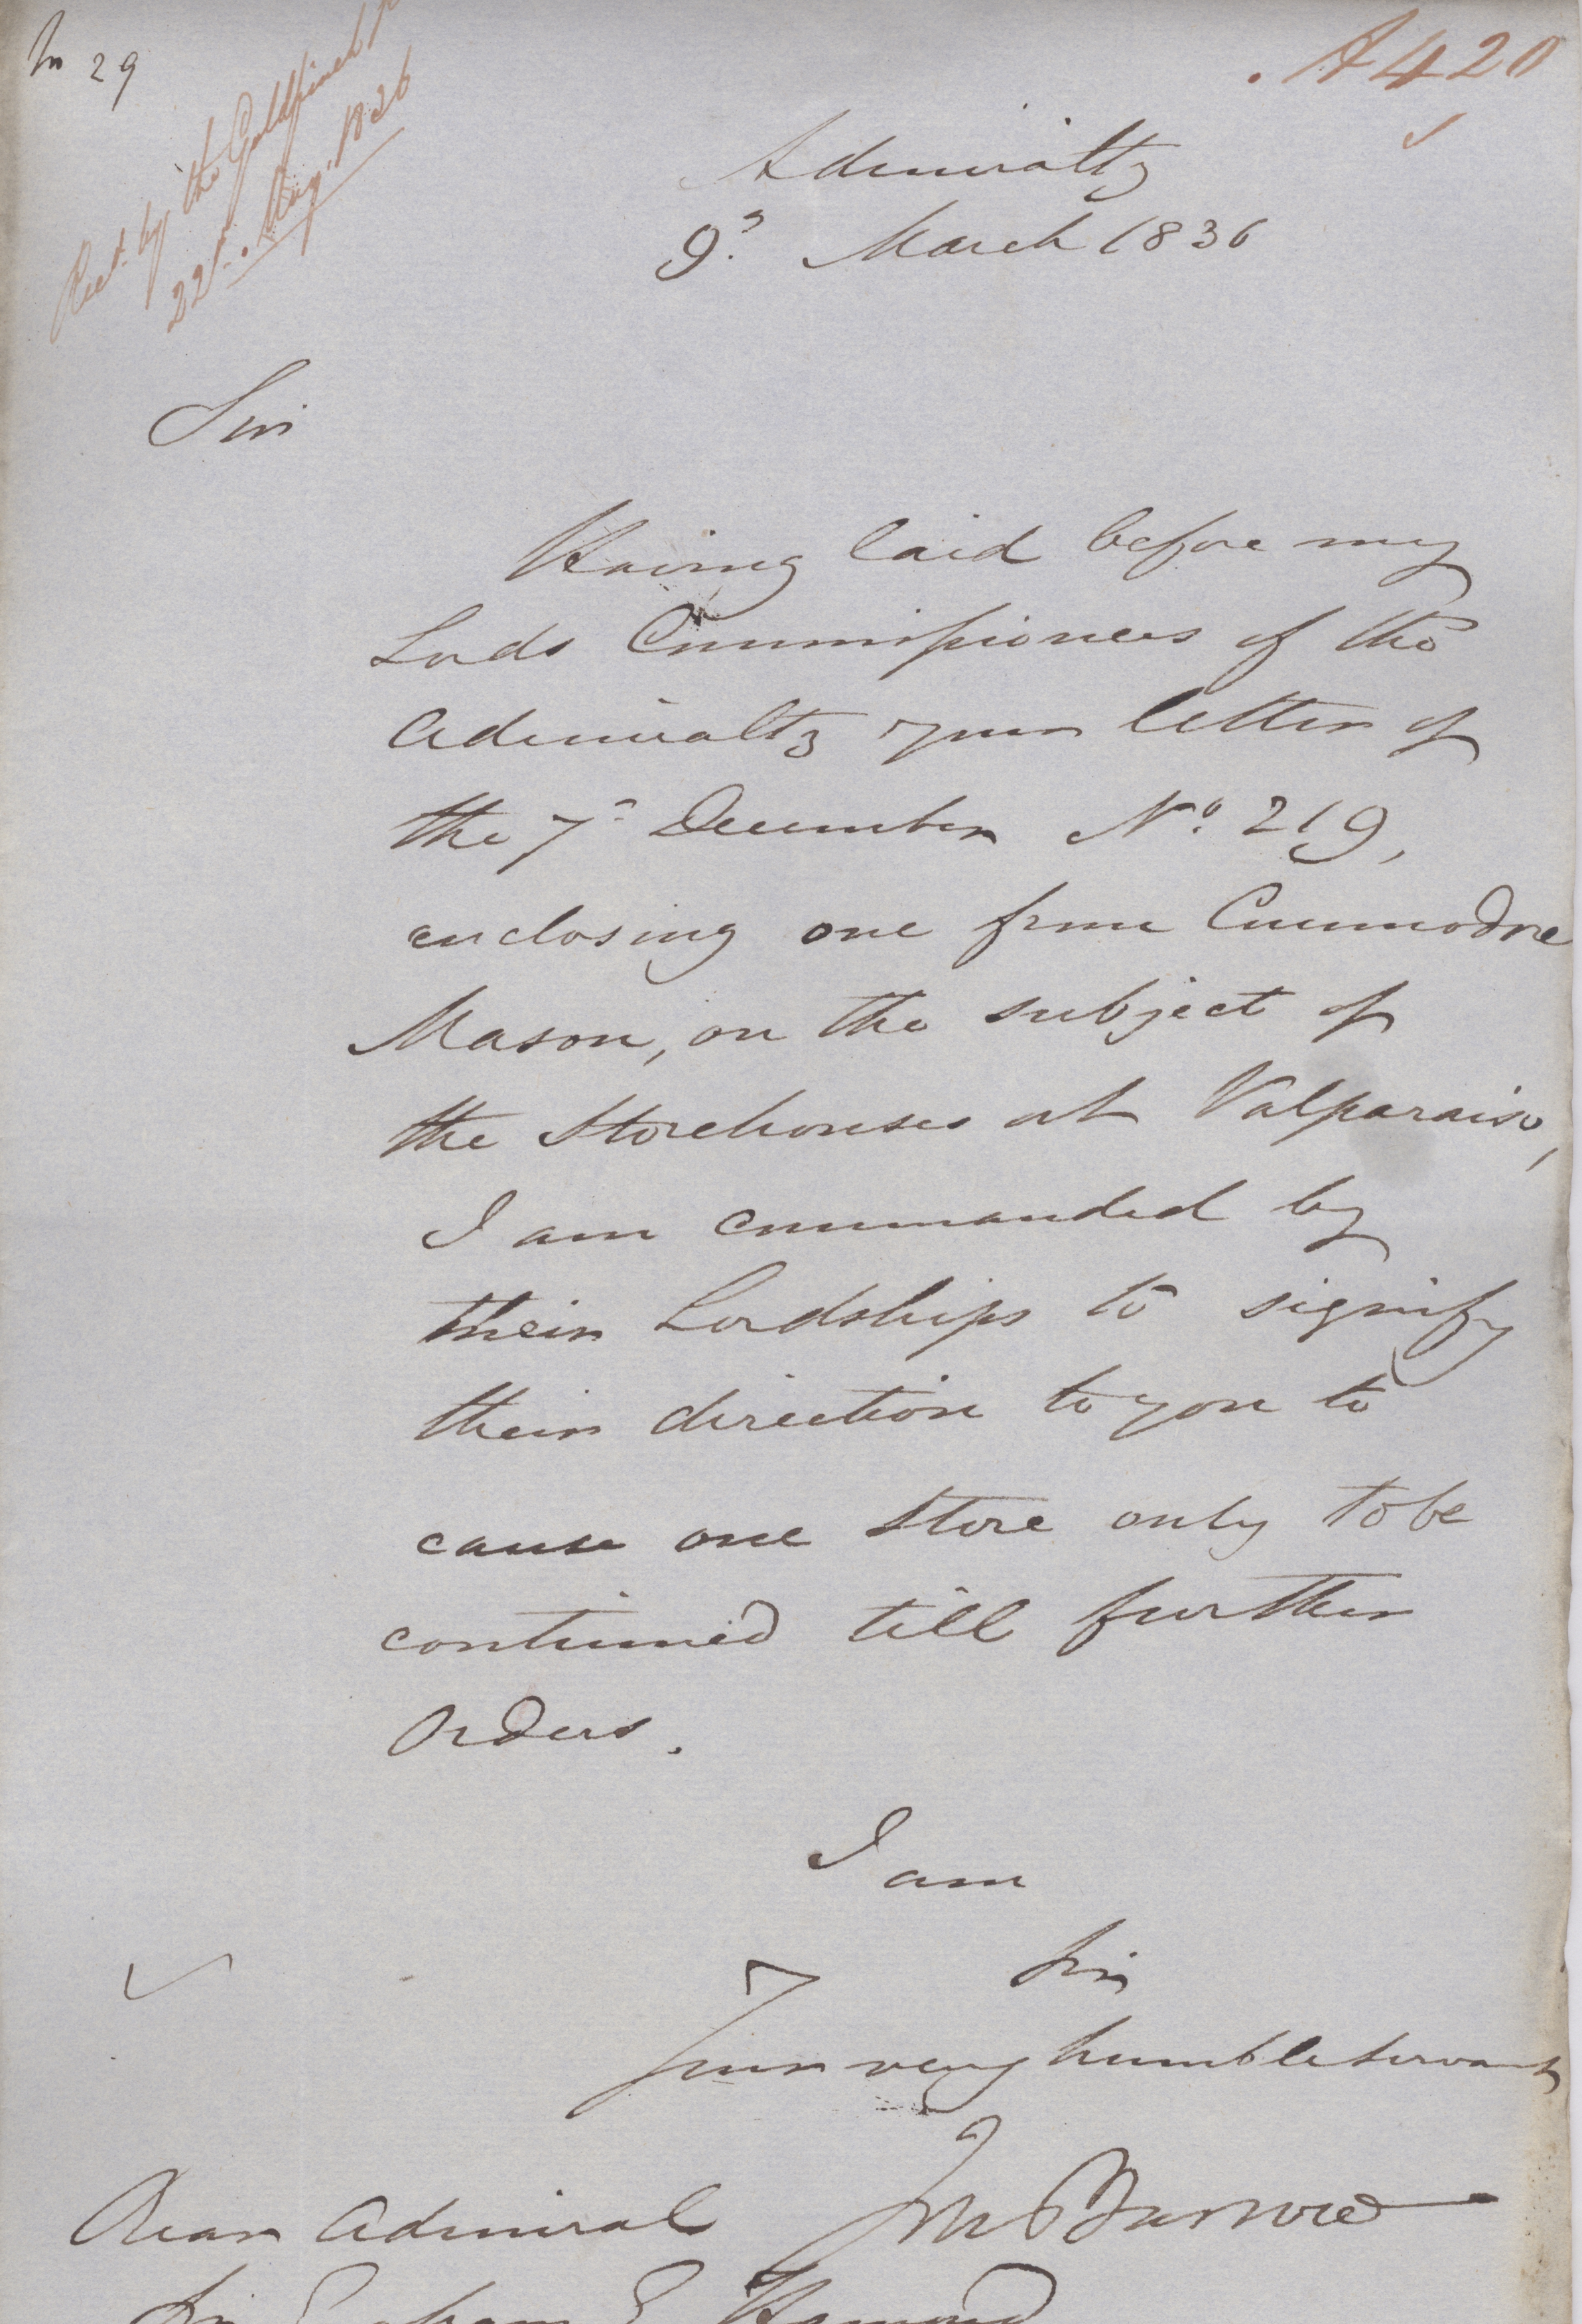 In 29
A 420
Rect. by the Goldfinch
22d. May, 1836
Admiralty
9th March 1836
Sir
Having laid before my
Lords Commissioners of the
Admiralty your letter of
the 7th December No. 219,
enclosing one from Commodore
Mason, on the subject of
the Storehouses at Valparaiso,
I am commanded by
their Lordships to signify
their direction to you to
cause one Store only to be
continued till further
Orders.
I am
Sir
Your very humble servant
Jn Barrow
Rear Admiral
Sir Graham E Hamond